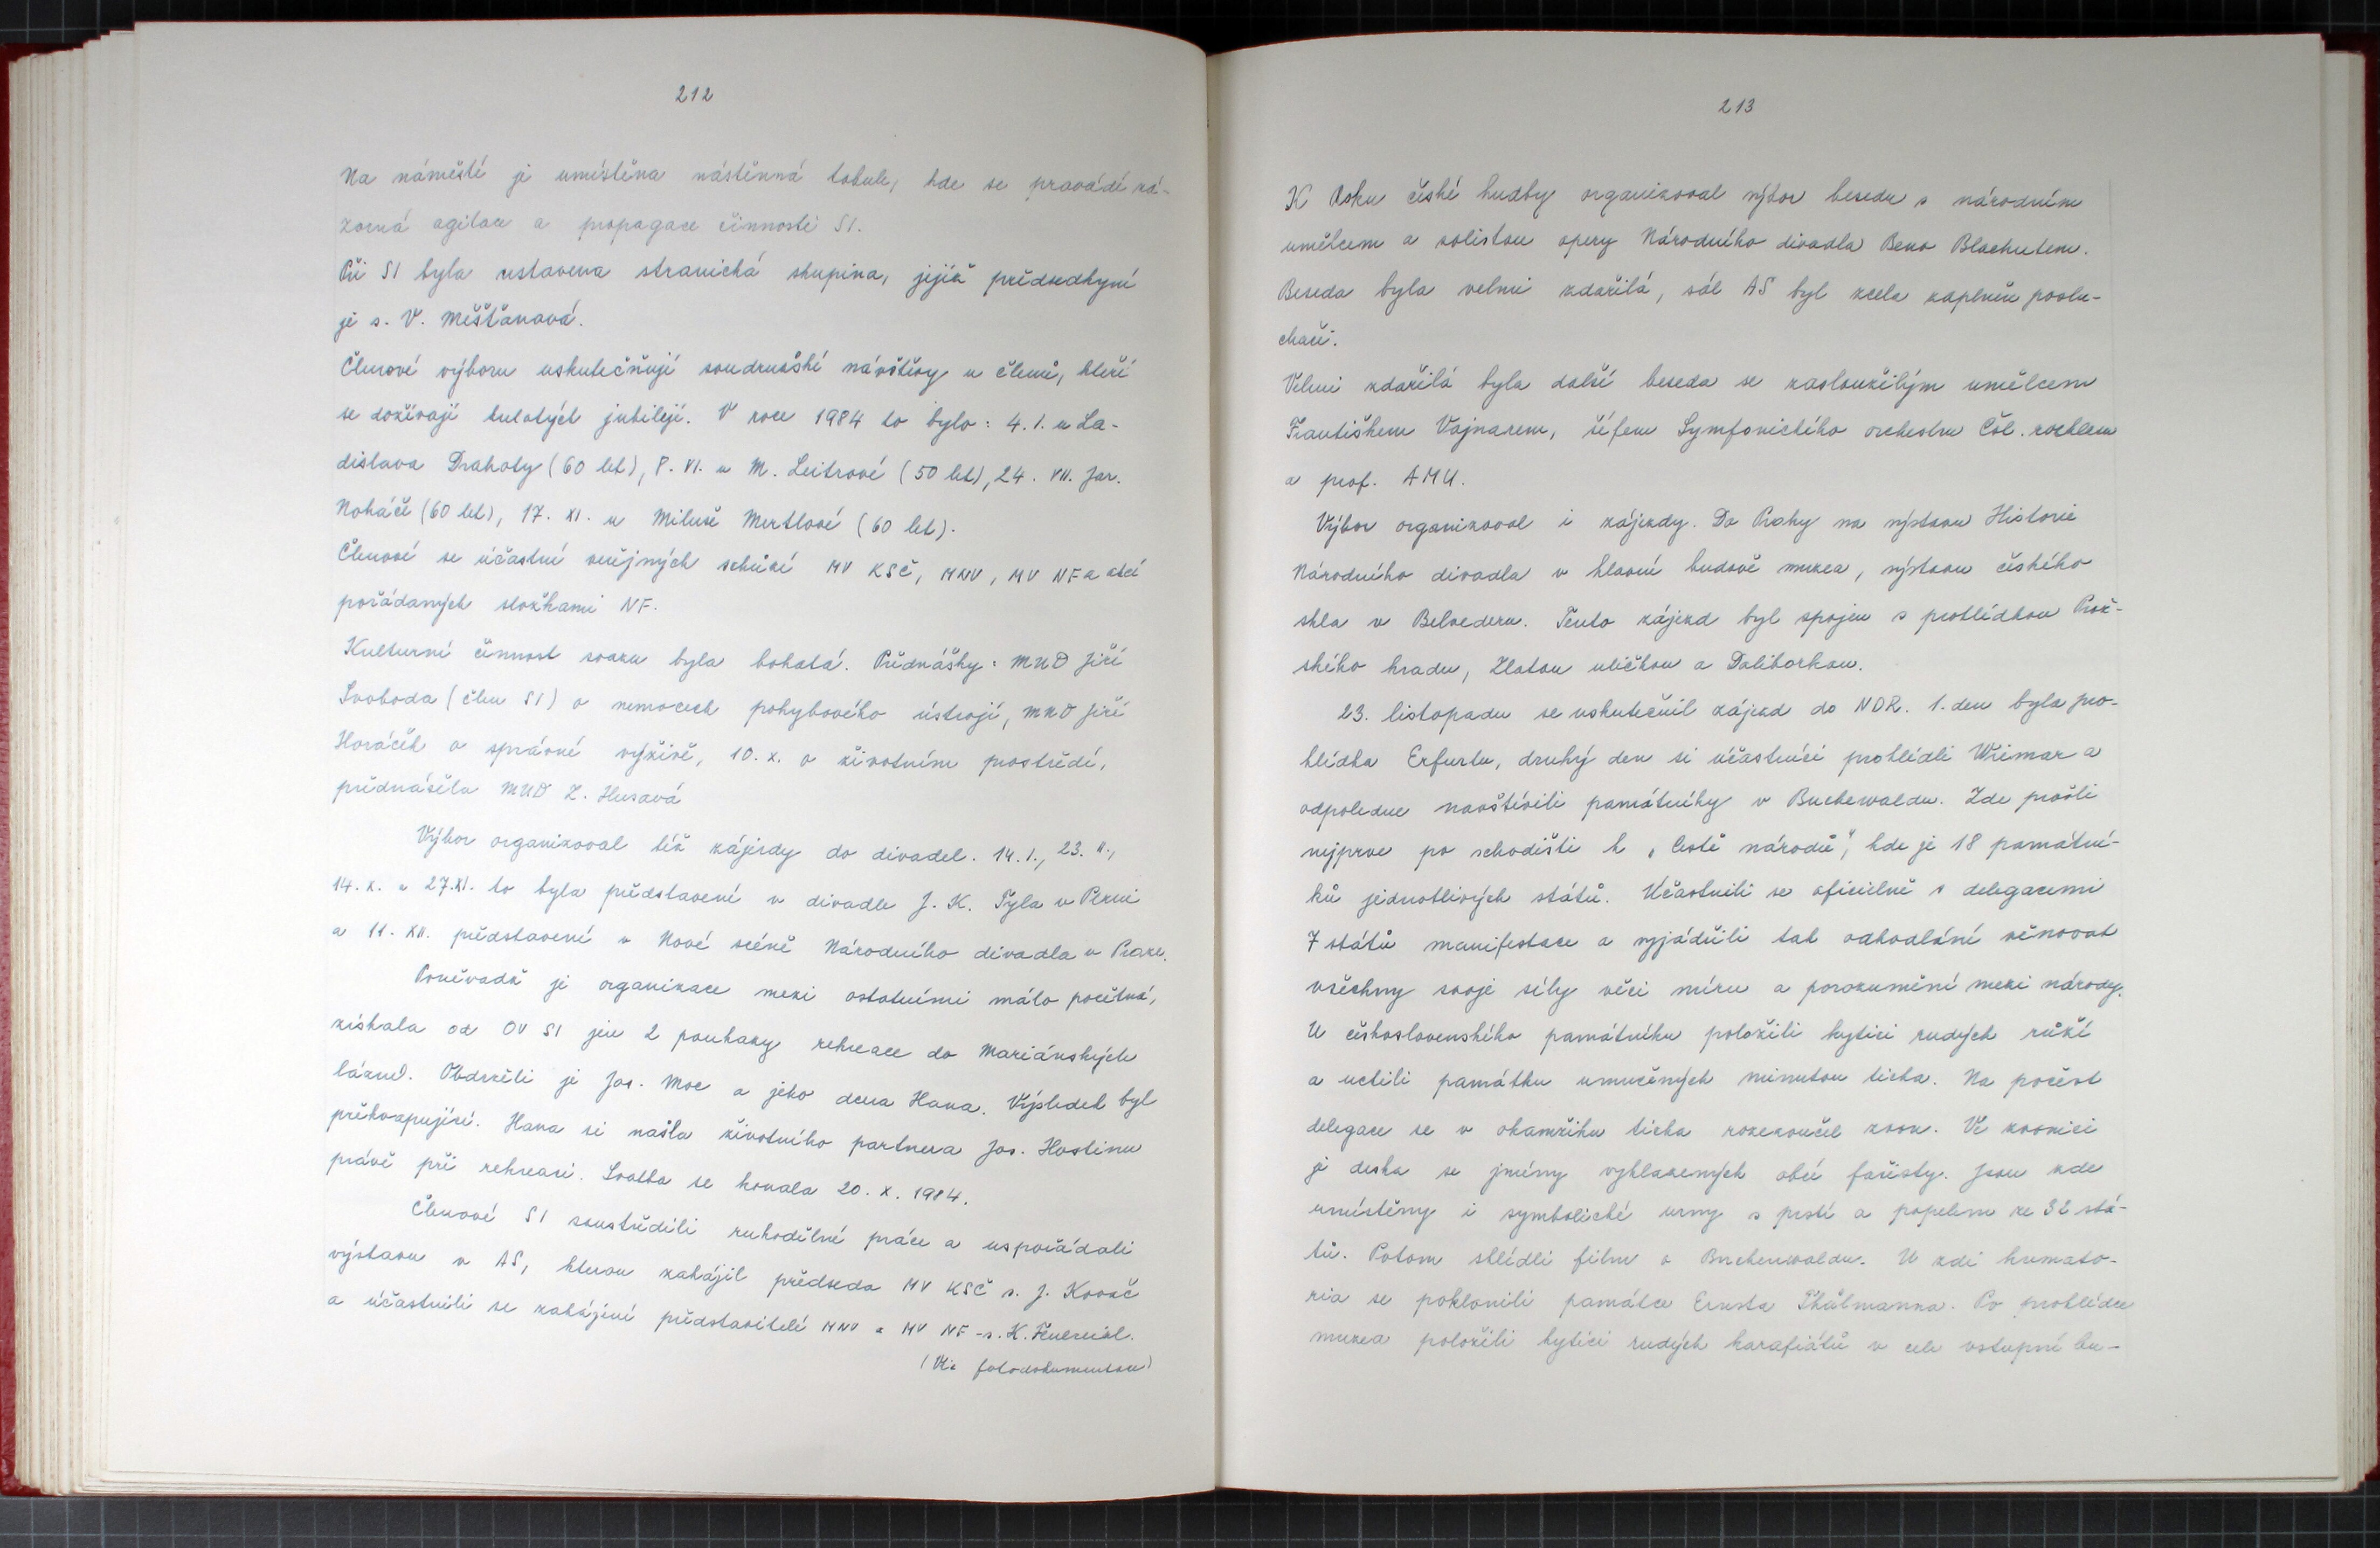 212
Na náměstí je umístěna nástěnná tabule, kde se provádí ná-
zorná agitace a propagace činnosti SI.
Při SI byla ustavena stranická skupina, jejíž předsedkyní
je s. V. Měšťanová.
Členové výboru uskutečňují soudružské návštěvy u členů, kteří
se dožívají kulatých jubilejí. V roce 1984 to bylo: 4. 1. u La-
dislava Drahoty (60 let), 8. VI. u M. Leitrové (50 let), 24. VII. Jar.
Noháče (60 let), 17. XI. u Miluše Mertlové (60 let).
Členové se účastní veřejných schůzí MV KSČ, MNV, MV NF a akcí
pořádaných složkami NF.
Kulturní činnost svazu byla bohatá. Přednášky: MUD Jiří
Svoboda (člen SI) o nemocech pohybového ústrojí, MUD Jiří
Horáček o správné výživě, 10. X. o životním prostředí,
přednášela MUD Z. Husavá
Výbor organizoval též zájezdy do divadel. 14. 1., 23. II.,
14. X. a 27. XI. to byla představení v divadle J. K. Tyla v Plzni
a 11. XII. představení v Nové scéně Národního divadla v Praze.
Poněvadž je organizace mezi ostatními málo početná,
získala od OV SI jen 2 poukazy rekreace do Mariánských
lázní. Obdrželi je Jos. Moc a jeho dcera Hana. Výsledek byl
překvapující. Hana si našla životního partnera Jos. Hostinu
právě při rekreaci. Svatba se konala 20. X. 1984.
Členové SI soustředili rukodělné práce a uspořádali
výstavu v AS, kterou zahájil předseda MV KSČ s. J. Kovač
a účastnili se zahájení představitelé MNV a MV NF - s. K.
(Viz fotodokumentace)
213
K Roku české hudby organizoval výbor besedu s národním
umělcem a solistou opery Národního divadla Beno Blachutem.
Beseda byla velmi zdařilá, sál AS byl zcela zaplněn poslu-
chači.
Velmi zdařilá byla další beseda se zasloužilým umělcem
Františkem Vajnarem, šéfem Symfonického orchestru Čsl. rozhlasu
a prof. AMU.
Výbor organizoval i zájezdy. Do Prahy na výstavu Historie
Národního divadla v hlavní budově muzea, výstavu českého
skla v Belvederu. Tento zájezd byl spojen s prohlídkou Praž-
ského hradu, Zlatou uličkou a Daliborkou.
23. listopadu se uskutečnil zájezd do NDR. 1. den byla pro-
hlídka Erfurtu, druhý den si účastníci prohlédli Weimar a
odpoledne navštívili památníky v Buchewaldu. Zde prošli
nejprve po schodišti k „Cestě národů“, kde je 18 památní-
ků jednotlivých států. Účastnili se oficielně s delegacemi
7 států manifestace a vyjádřili tak odhodlání věnovat
všechny svoje síly věci míru a porozumění mezi národy.
U československého památníku položili kytici rudých růží
a uctili památku umučených minutou ticha. Na počest
delegace se v okamžiku ticha rozezvučel zvon. Ve zvonici
je deska se jmény vyhlazených obcí fašisty. Jsou zde
umístěny i symbolické urny s prstí a popelem ze 32 stá-
tů. Potom shlédli film o Buchenwaldu. U zdi kremato-
ria se poklonili památce Ernsta Thälmanna. Po prohlídce
muzea položili kytici rudých karafiátů v cele vstupní bu-